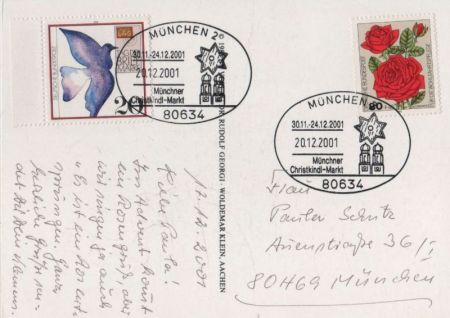 MÜNCHEN 2
30.11.-24.12.2001
20.12.2001
Münchner
Christkindl-Markt
80634
20
MÜNCHEN
80
30.11.-24.12.2001
20.12.2001
Münchner
Christkindl-Markt
80634
RUDOLF GEORGI · WOLDEMAR KLEIN, AACHEN
17.12.2001
Liebe Paula!
Im Advent kommt
ein Rosengruß, aber
wir singen ja auch
"Es ist ein Ros ent-
sprungen", ganz
herzliche Grüße
Frau
Paula Schütz
Auenstraße 36/I
80469 München